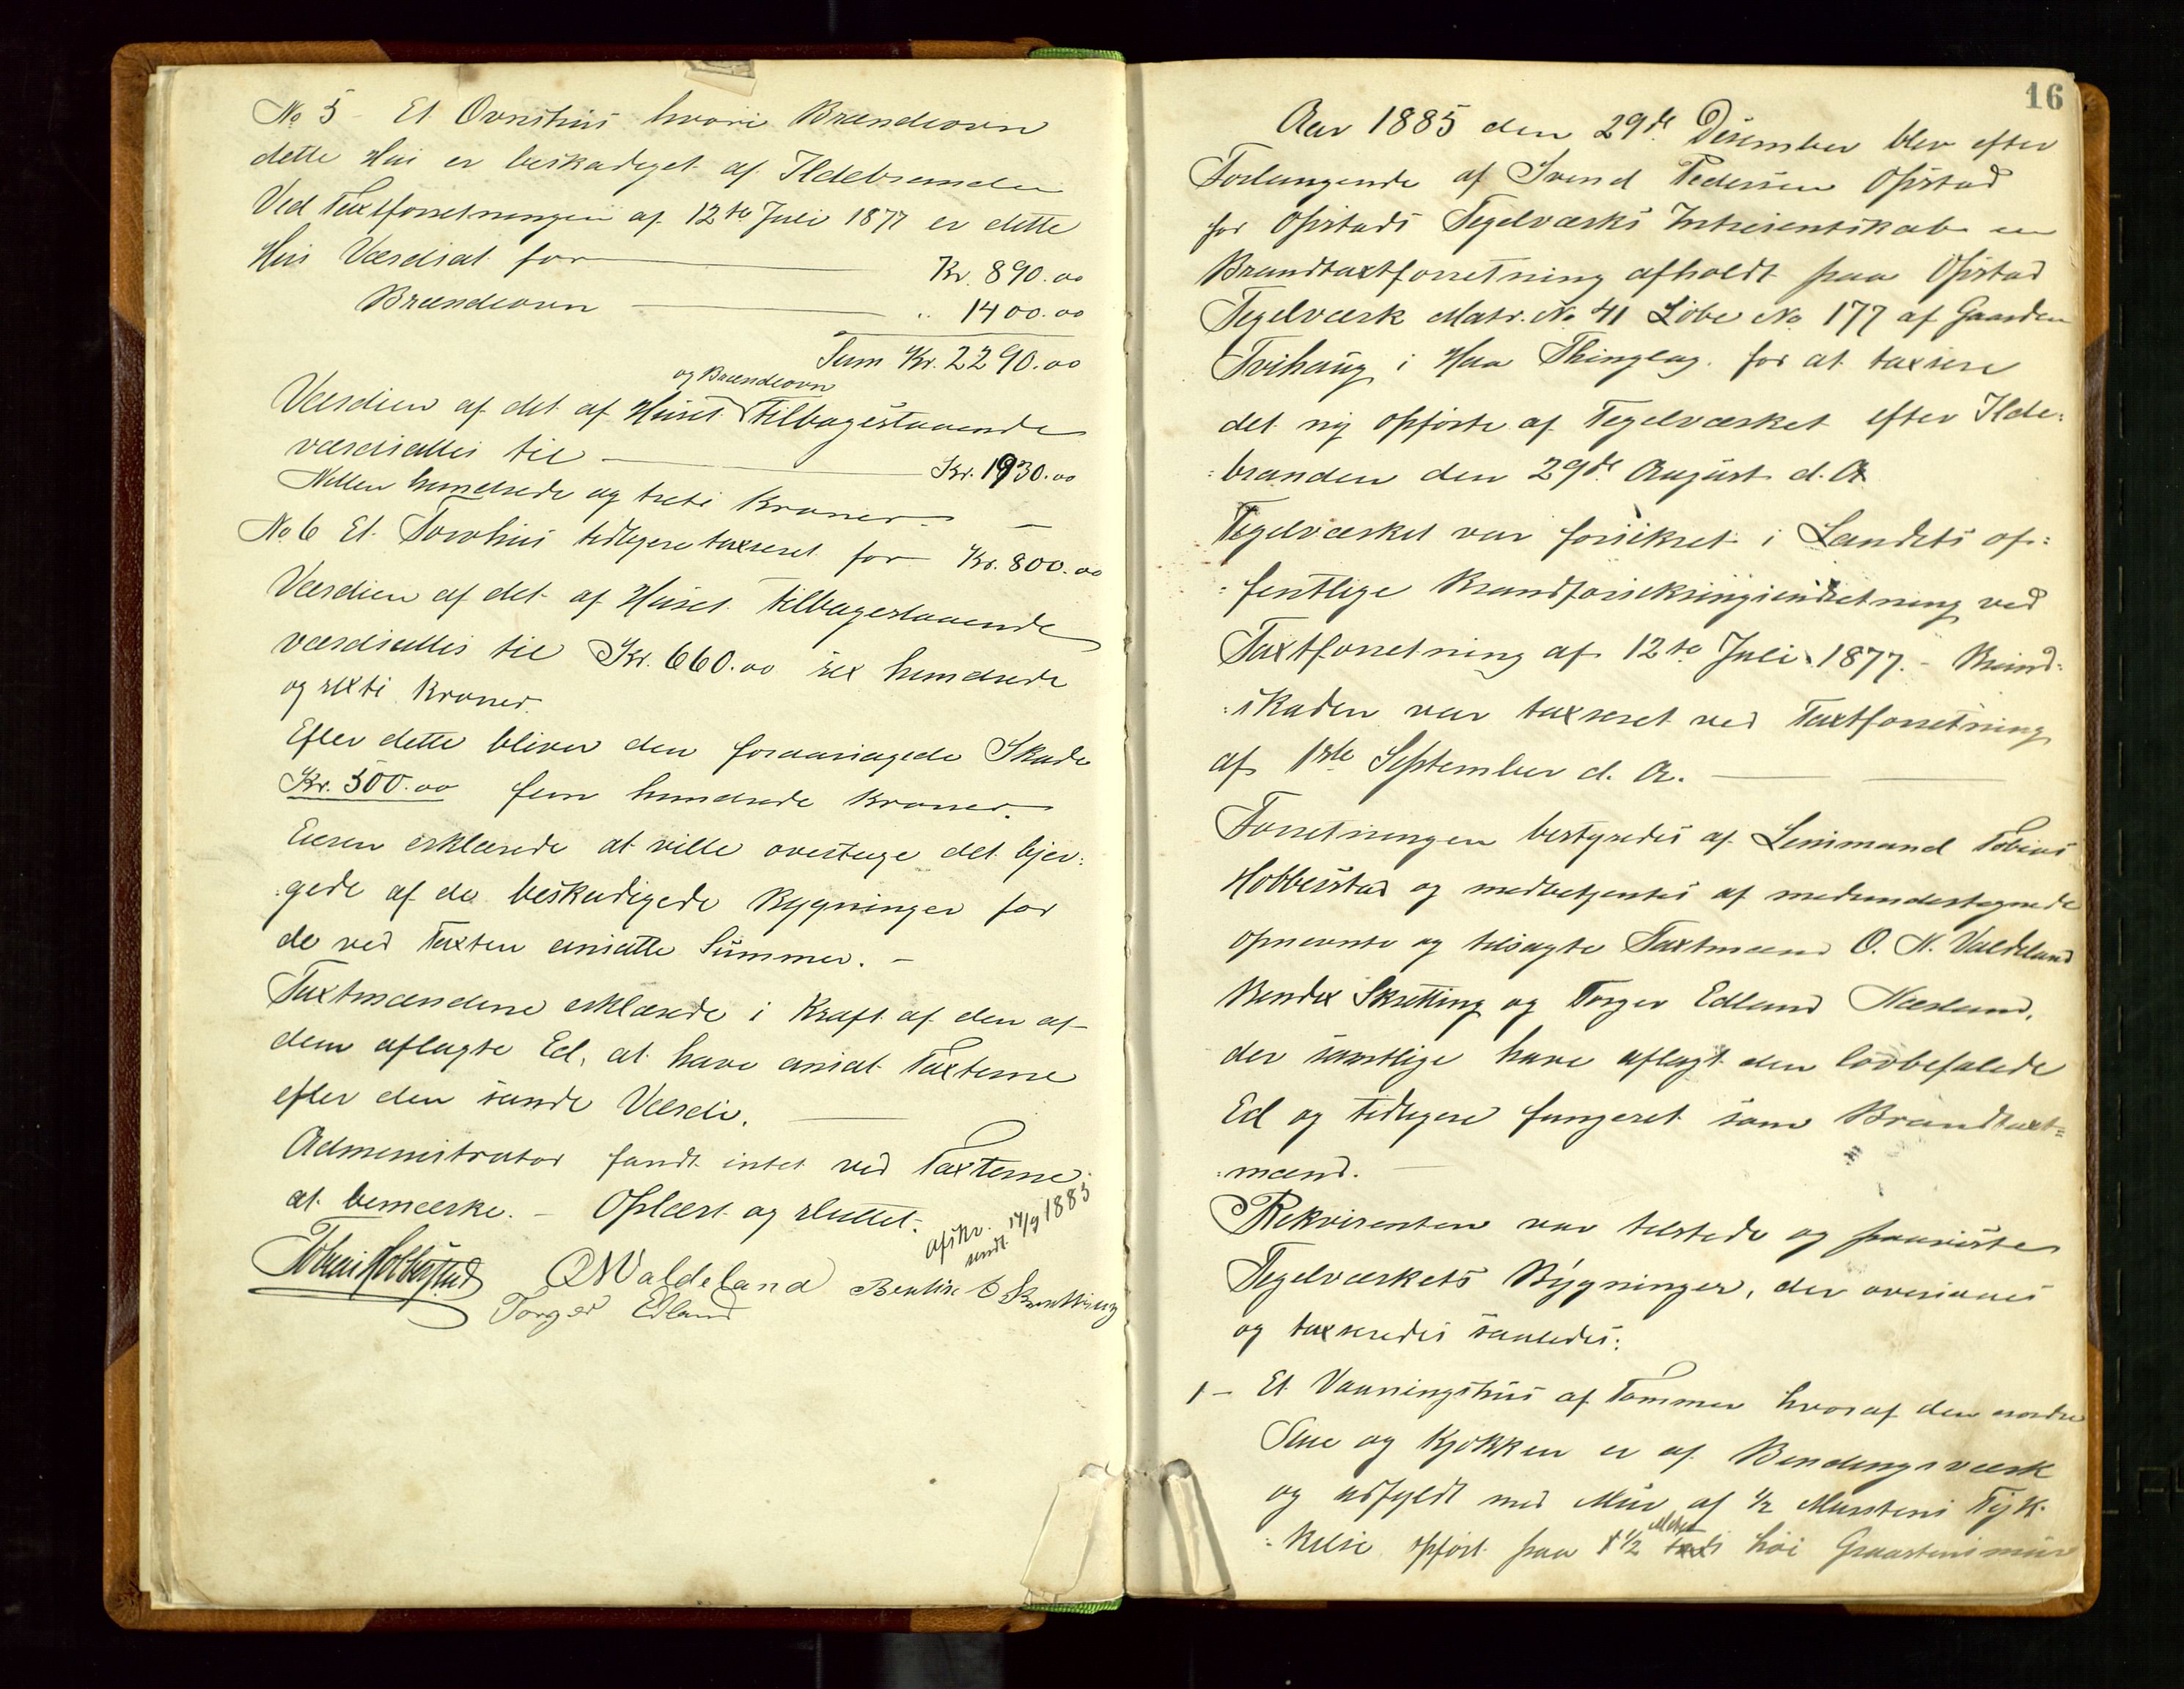 No 5 - Et Ovnshus hvori Brændeovn
dette Hus er beskadiget af Ildebranden
Ved Taxtforretningen af 12te Juli 1877 er dette
Hus Værdisat for Kr. 890.00
Brændeovn " 1400.00
Sum Kr. 2290.00
og Brændeovn
Værdien af det af Huset tilbagestaaende
værdisattes til Kr. 1930.00
Nitten hundrede og treti Kroner. —
No 6 Et Torvhus tidligere taxseret for Kr. 800.00
Værdien af det af Huset tilbagestaaende
værdisattes til Kr. 660.00 sex hundrede
og sexti Kroner.
Efter dette bliver den foraarsagede Skade
Kr. 500.00 fem hundrede Kroner.
Eieren erklærede at ville overtage det bjer:
:gede af de beskadigede Bygninger for
de ved Taxten ansatte Summer. -
Taxtmændene erklærede i Kraft af den af
dem aflagte Ed, at have ansat Taxterne
efter den sande Værdi.
Administrator fandt intet ved Taxterne
at bemærke. - Oplæst og sluttet.
afskr. sendt 14/9 1885
Tobias Hobberstad O N Valdeland Bentise O Skretting
Torger Edland
16
Aar 1885 den 29de Desember blev efter
Forlangende af Svend Pedersen Opstad
for Opstads Tegelværks Intresentskab en
Brandtaxtforretning afholdt paa Opstad
Tegelværk Matr. No 41 Løbe No 177 af Gaarden
Tvihaug i Haa Thinglag for at taxsere
det ny opførte af Tegelværket efter Ilde:
:branden den 29de August d. A
Tegelværket var forsikret i Landets of:
:fentlige Brandforsikringsindretning ved
Taxtforretning af 12te Juli 1877. - Brand:
:skaden var taxseret ved Taxtforretning
af 1ste September d. A.
Forretningen bestyredes af Lensmand Tobias
Hobberstad og medbetjentes af medundertegnede
opnevnte og tilsagte Taxtmænd O. N. Valdeland
Bendix Skretting og Torger Edland Nærland,
der samtlige have aflagt den lovbefalede
Ed og tidligere fungeret som Brandtaxt=
:mænd. -
Rekvirenten var tilstede og paaviste
Tegelværkets Bygninger, der overisaues
og taxseredes saaledes:
1 - Et Vaaningshus af Tømmer hvoraf den nordre
Stue og Kjøkken er af Bendingsværk
og udfyldt med Mur af 1/2 Murstens Tyk:
Meter
:kelse opført paa 1/2 høi Graastensmur